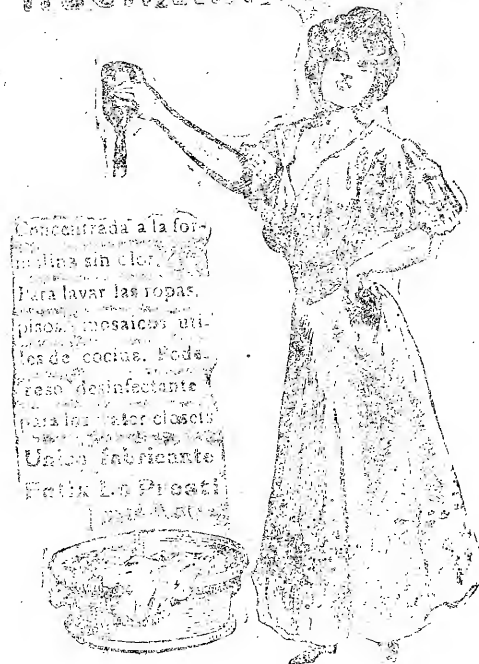 Concentrada a la for-
malina sin clor.
Para lavar las ropas,
pisos, mosaicos úti-
les de cocina. Pode-
roso desinfectante
para los water closets
Unico fabricante
Felix Lo Presti